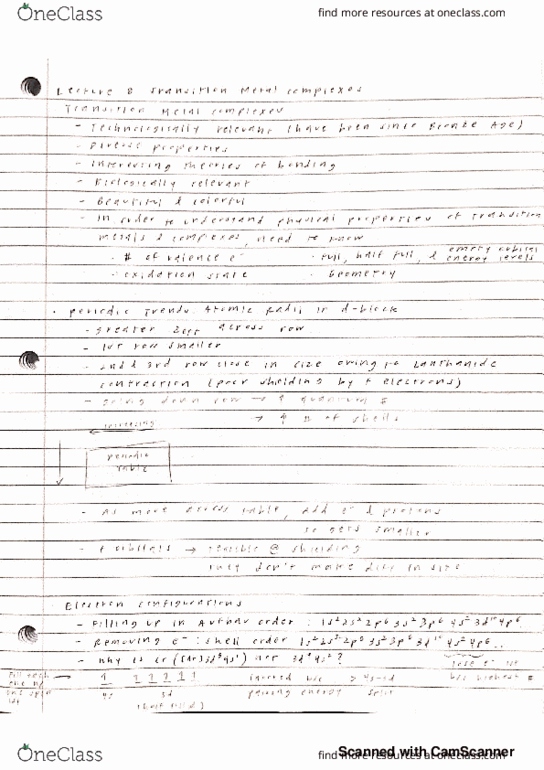 OneClass find more resources at oneclass.com
Lecture 8 Transition Metal complexes
Transition Metal complexes
- Technologically relevant (have been since Bronze Age)
- Diverse properties
- Interesting theories of bonding
- Biologically relevant
- Beautiful & colorful
- In order to understand physical properties of transition
metals & complexes, need to know
· # of valence e⁻ · Full, half full, & empty orbital energy levels
· oxidation state · Geometry
· Periodic Trends: Atomic Radii in d-block
- greater Zeff across row
- 1st row smaller
- 2nd & 3rd row close in size owing to Lanthanide
contraction (poor shielding by f electrons)
- going down row → ↑ quantum #
increasing → ↑ # of shells
periodic
table
- As move across table, add e⁻ & protons
so gets smaller
- f orbitals → terrible @ shielding
they don't make diff in size
Electron configurations
- Filling up in Aufbau order: 1s²2s²2p⁶3s²3p⁶4s²3d¹⁰4p⁶
- Removing e⁻: shell order 1s²2s²2p⁶3s²3p⁶3d¹⁰4s²4p⁶..
- Why is Cr ([Ar]3d⁵4s¹) not 3d⁴4s²?
Fill each 1 1 1 1 1 1 b/c > 4s-3d b/c highest #
4s 3d pairing energy split
(half filled)
OneClass find more resources at oneclass.com
Scanned with CamScanner